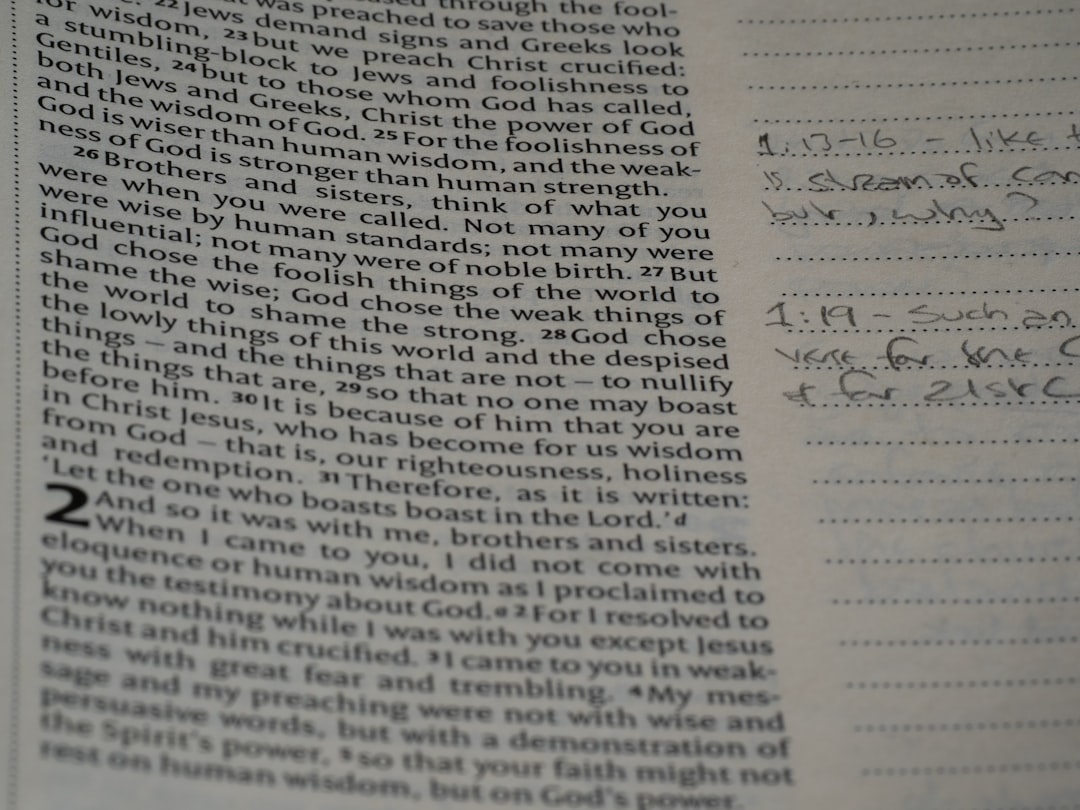 through the fool-
was preached to save those who
22 Jews demand signs and Greeks look
for wisdom, 23 but we preach Christ crucified:
a stumbling-block to Jews and foolishness to
Gentiles, 24 but to those whom God has called,
both Jews and Greeks, Christ the power of God
and the wisdom of God. 25 For the foolishness of
God is wiser than human wisdom, and the weak-
ness of God is stronger than human strength.
26 Brothers and sisters, think of what you
were when you were called. Not many of you
were wise by human standards; not many were
influential; not many were of noble birth. 27 But
God chose the foolish things of the world to
shame the wise; God chose the weak things of
the world to shame the strong. 28 God chose
the lowly things of this world and the despised
things – and the things that are not – to nullify
the things that are, 29 so that no one may boast
before him. 30 It is because of him that you are
in Christ Jesus, who has become for us wisdom
from God – that is, our righteousness, holiness
and redemption. 31 Therefore, as it is written:
‘Let the one who boasts boast in the Lord.’ d
2 And so it was with me, brothers and sisters.
When I came to you, I did not come with
eloquence or human wisdom as I proclaimed to
you the testimony about God. a 2 For I resolved to
know nothing while I was with you except Jesus
Christ and him crucified. 3 I came to you in weak-
ness with great fear and trembling. 4 My mes-
sage and my preaching were not with wise and
persuasive words, but with a demonstration of
the Spirit's power, 5 so that your faith might not
rest on human wisdom, but on God's power.
1:13-16 - like
is stream of con
but, why?
1:19 - Such an
verse for the
+ for 21st C